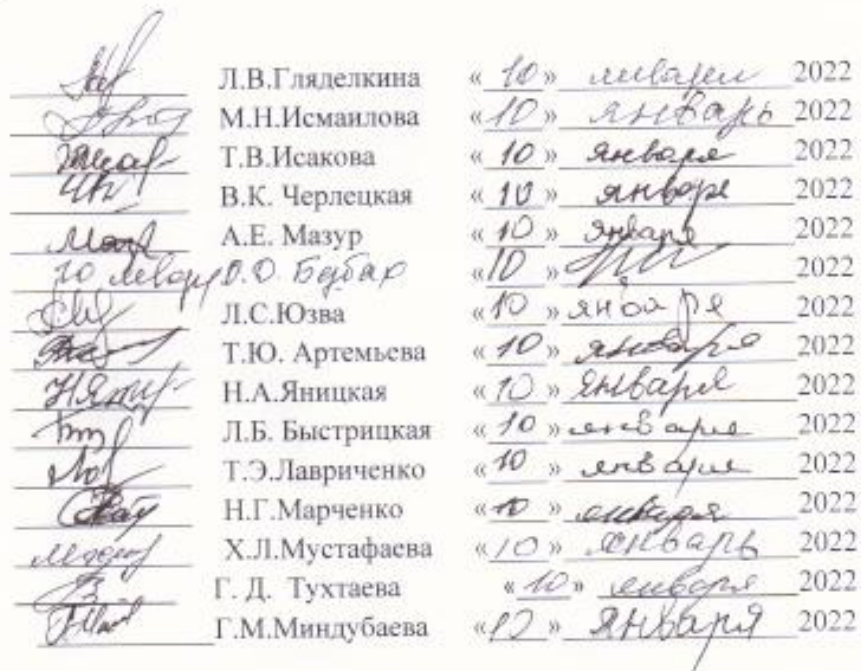 Л.В.Гляделкина «10» января 2022
М.Н.Исмаилова «10» январь 2022
Т.В.Исакова «10» января 2022
В.К. Черлецкая «10» января 2022
А.Е. Мазур «10» января 2022
10 «10» 2022
Л.С.Юзва «10» января 2022
Т.Ю. Артемьева «10» января 2022
Н.А.Яницкая «10» января 2022
Л.Б. Быстрицкая «10» января 2022
Т.Э.Лавриченко «10» января 2022
Н.Г.Марченко «10» января 2022
Х.Л.Мустафаева «10» январь 2022
Г. Д. Тухтаева «10» января 2022
Г.М.Миндубаева «10» января 2022